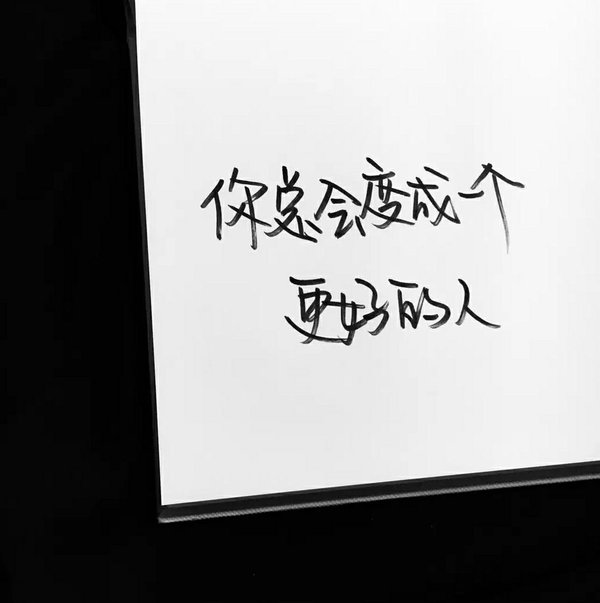 你总会变成一个
更好的人